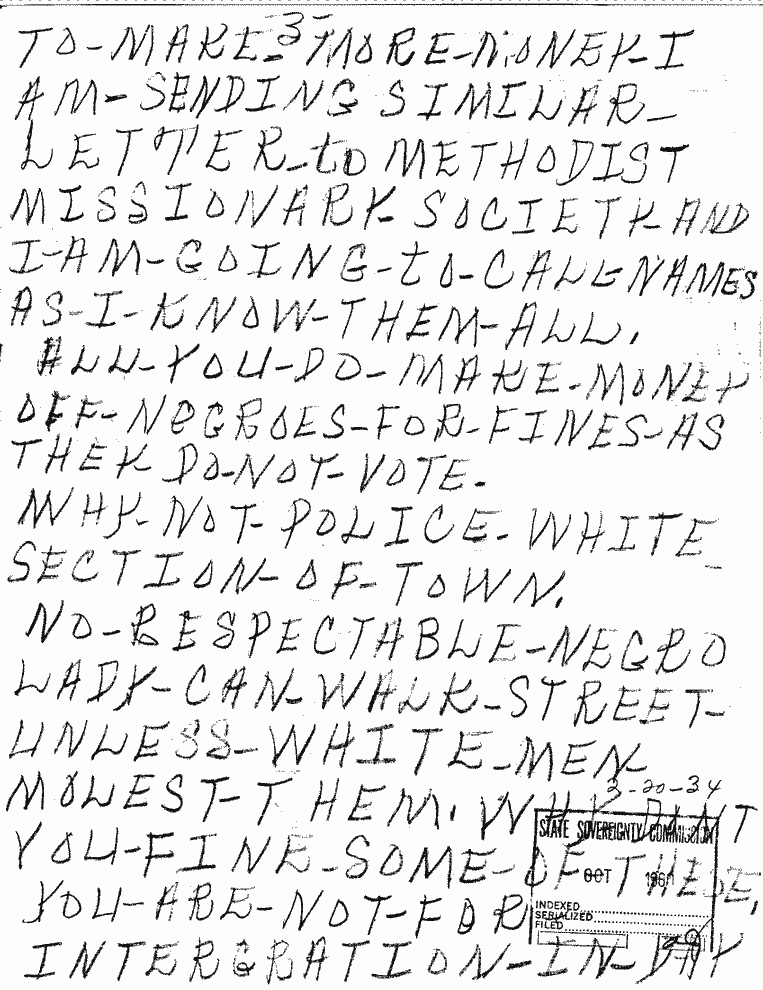 -3-
TO-MAKE-MORE-MONEY-I
AM-SENDING SIMILAR-
LETTER-to METHODIST
MISSIONARY-SOCIETY-AND
I-AM-GOING-to-CALL-NAMES
AS-I-KNOW-THEM-ALL.
ALL-YOU-DO-MAKE-MONEY
OFF-NeGROES-FOR-FINES-AS
THEY-DO-NOT-VOTE.
WHY-NOT-POLICE-WHITE
SECTION-OF-TOWN.
NO-RESPECTABLE-NEGRO
LADY-CAN-WALK-STREET-
UNLESS-WHITE-MEN
3-20-34
MOLEST-THEM. WHY DONT
STATE SOVEREIGNTY COMMISSION
YOU-FINE-SOME-OF THESE,
OCT 1960
YOU-ARE-NOT-FOR
INDEXED
SERIALIZED
FILED
INTERGRATION-IN-DAY